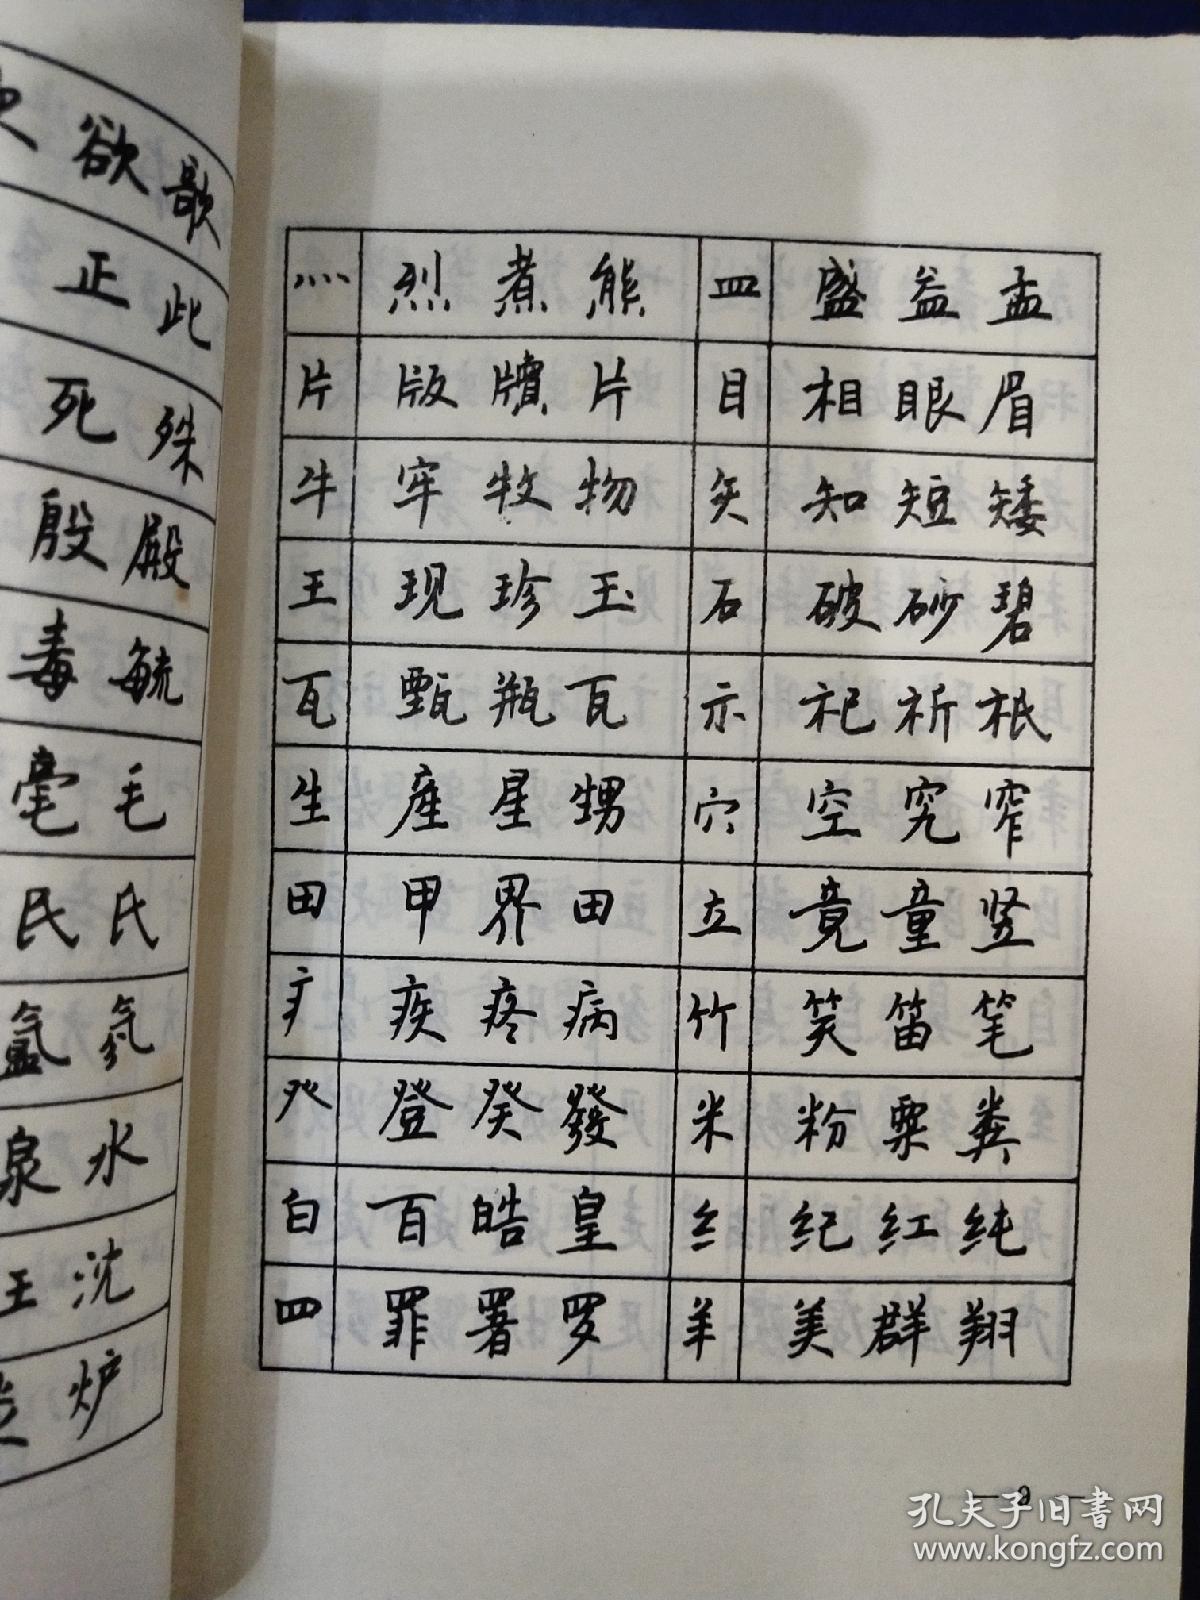 欲 歌
正 此
死 殊
殷 殿
毒 毓
毫 毛
民 氏
氩 氛
泉 水
王 沈
炉
灬 烈 煮 熊 皿 盛 益 盂
片 版 牍 片 目 相 眼 眉
牛 牢 牧 物 矢 知 短 矮
王 现 珍 玉 石 破 砂 碧
瓦 甄 瓶 瓦 示 祀 祈 祇
生 産 星 甥 穴 空 究 窄
田 甲 界 田 立 竟 童 竖
疒 疾 疼 病 竹 笑 笛 笔
癶 登 癸 發 米 粉 粟 粪
白 百 皓 皇 纟 纪 红 纯
罒 罪 署 罗 羊 美 群 翔
— 9 —
孔夫子旧书网
www.kongfz.com